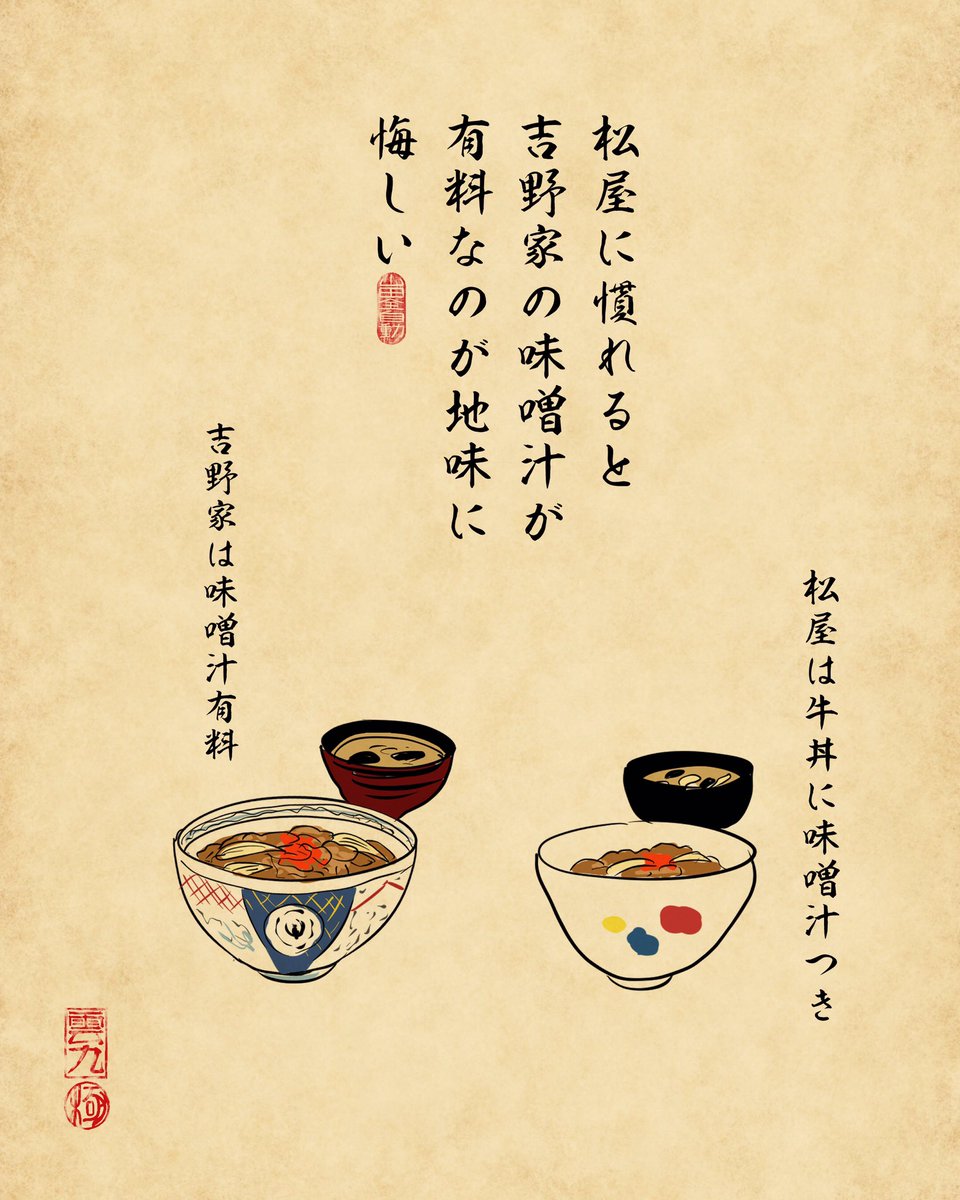 松屋に慣れると
吉野家の味噌汁が
有料なのが地味に
悔しい
松屋は牛丼に味噌汁つき
吉野家は味噌汁有料